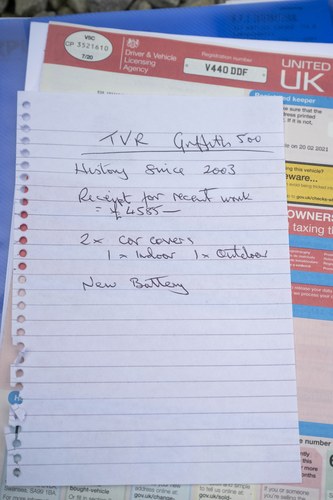 V5C
7/20
Driver & Vehicle
Licensing
Agency
Registration number
V440 DDF
UNITED
UK
Registered keeper
TVR Griffith 500
History Since 2003
Receipt for recent work
= £4555—
2x Car covers
1x Indoor 1x Outdoor
New Battery